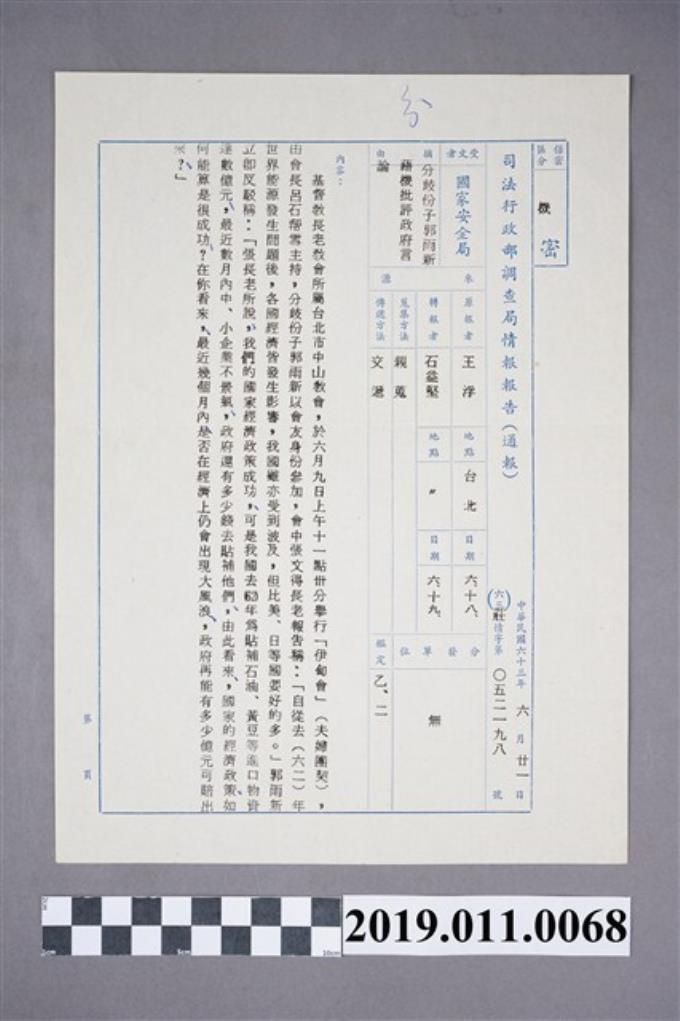 保密區分
機密
司法行政部調查局情報報告（通報）
中華民國六十三年六月廿一日
（六三）壯情字第〇五二一九八號
受文者
國家安全局
摘由
分歧份子郭雨新藉機批評政府言論
來源
原報者
王淳
地點
台北
日期
六、十八、
轉報者
石益堅
地點
〃
日期
六、十九、
蒐集方法
親蒐
傳遞方法
交遞
分發單位
無
鑑定
乙、二
內容：
基督教長老教會所屬台北市中山教會，於六月九日上午十一點卅分舉行「伊甸會」（夫婦團契），
由會長呂石帮雪主持，分歧份子郭雨新以會友身份參加，會中張文得長老報告稱：「自從去（六二）年
世界能源發生問題後，各國經濟皆發生影響，我國雖亦受到波及，但比美、日等國要好的多。」郭雨新
立卽反駁稱：「張長老所說，我們的國家經濟政策成功，可是我國去63年爲貼補石油、黃豆等進口物資
達數億元，最近數月內中、小企業不景氣，政府還有多少錢去貼補他們，由此看來，國家的經濟政策如
何能算是很成功？在你看來，最近幾個月內是否在經濟上仍會出現大風浪，政府再能有多少億元可賠出
來？」
第頁
cm
5cm
10cm
2019.011.0068